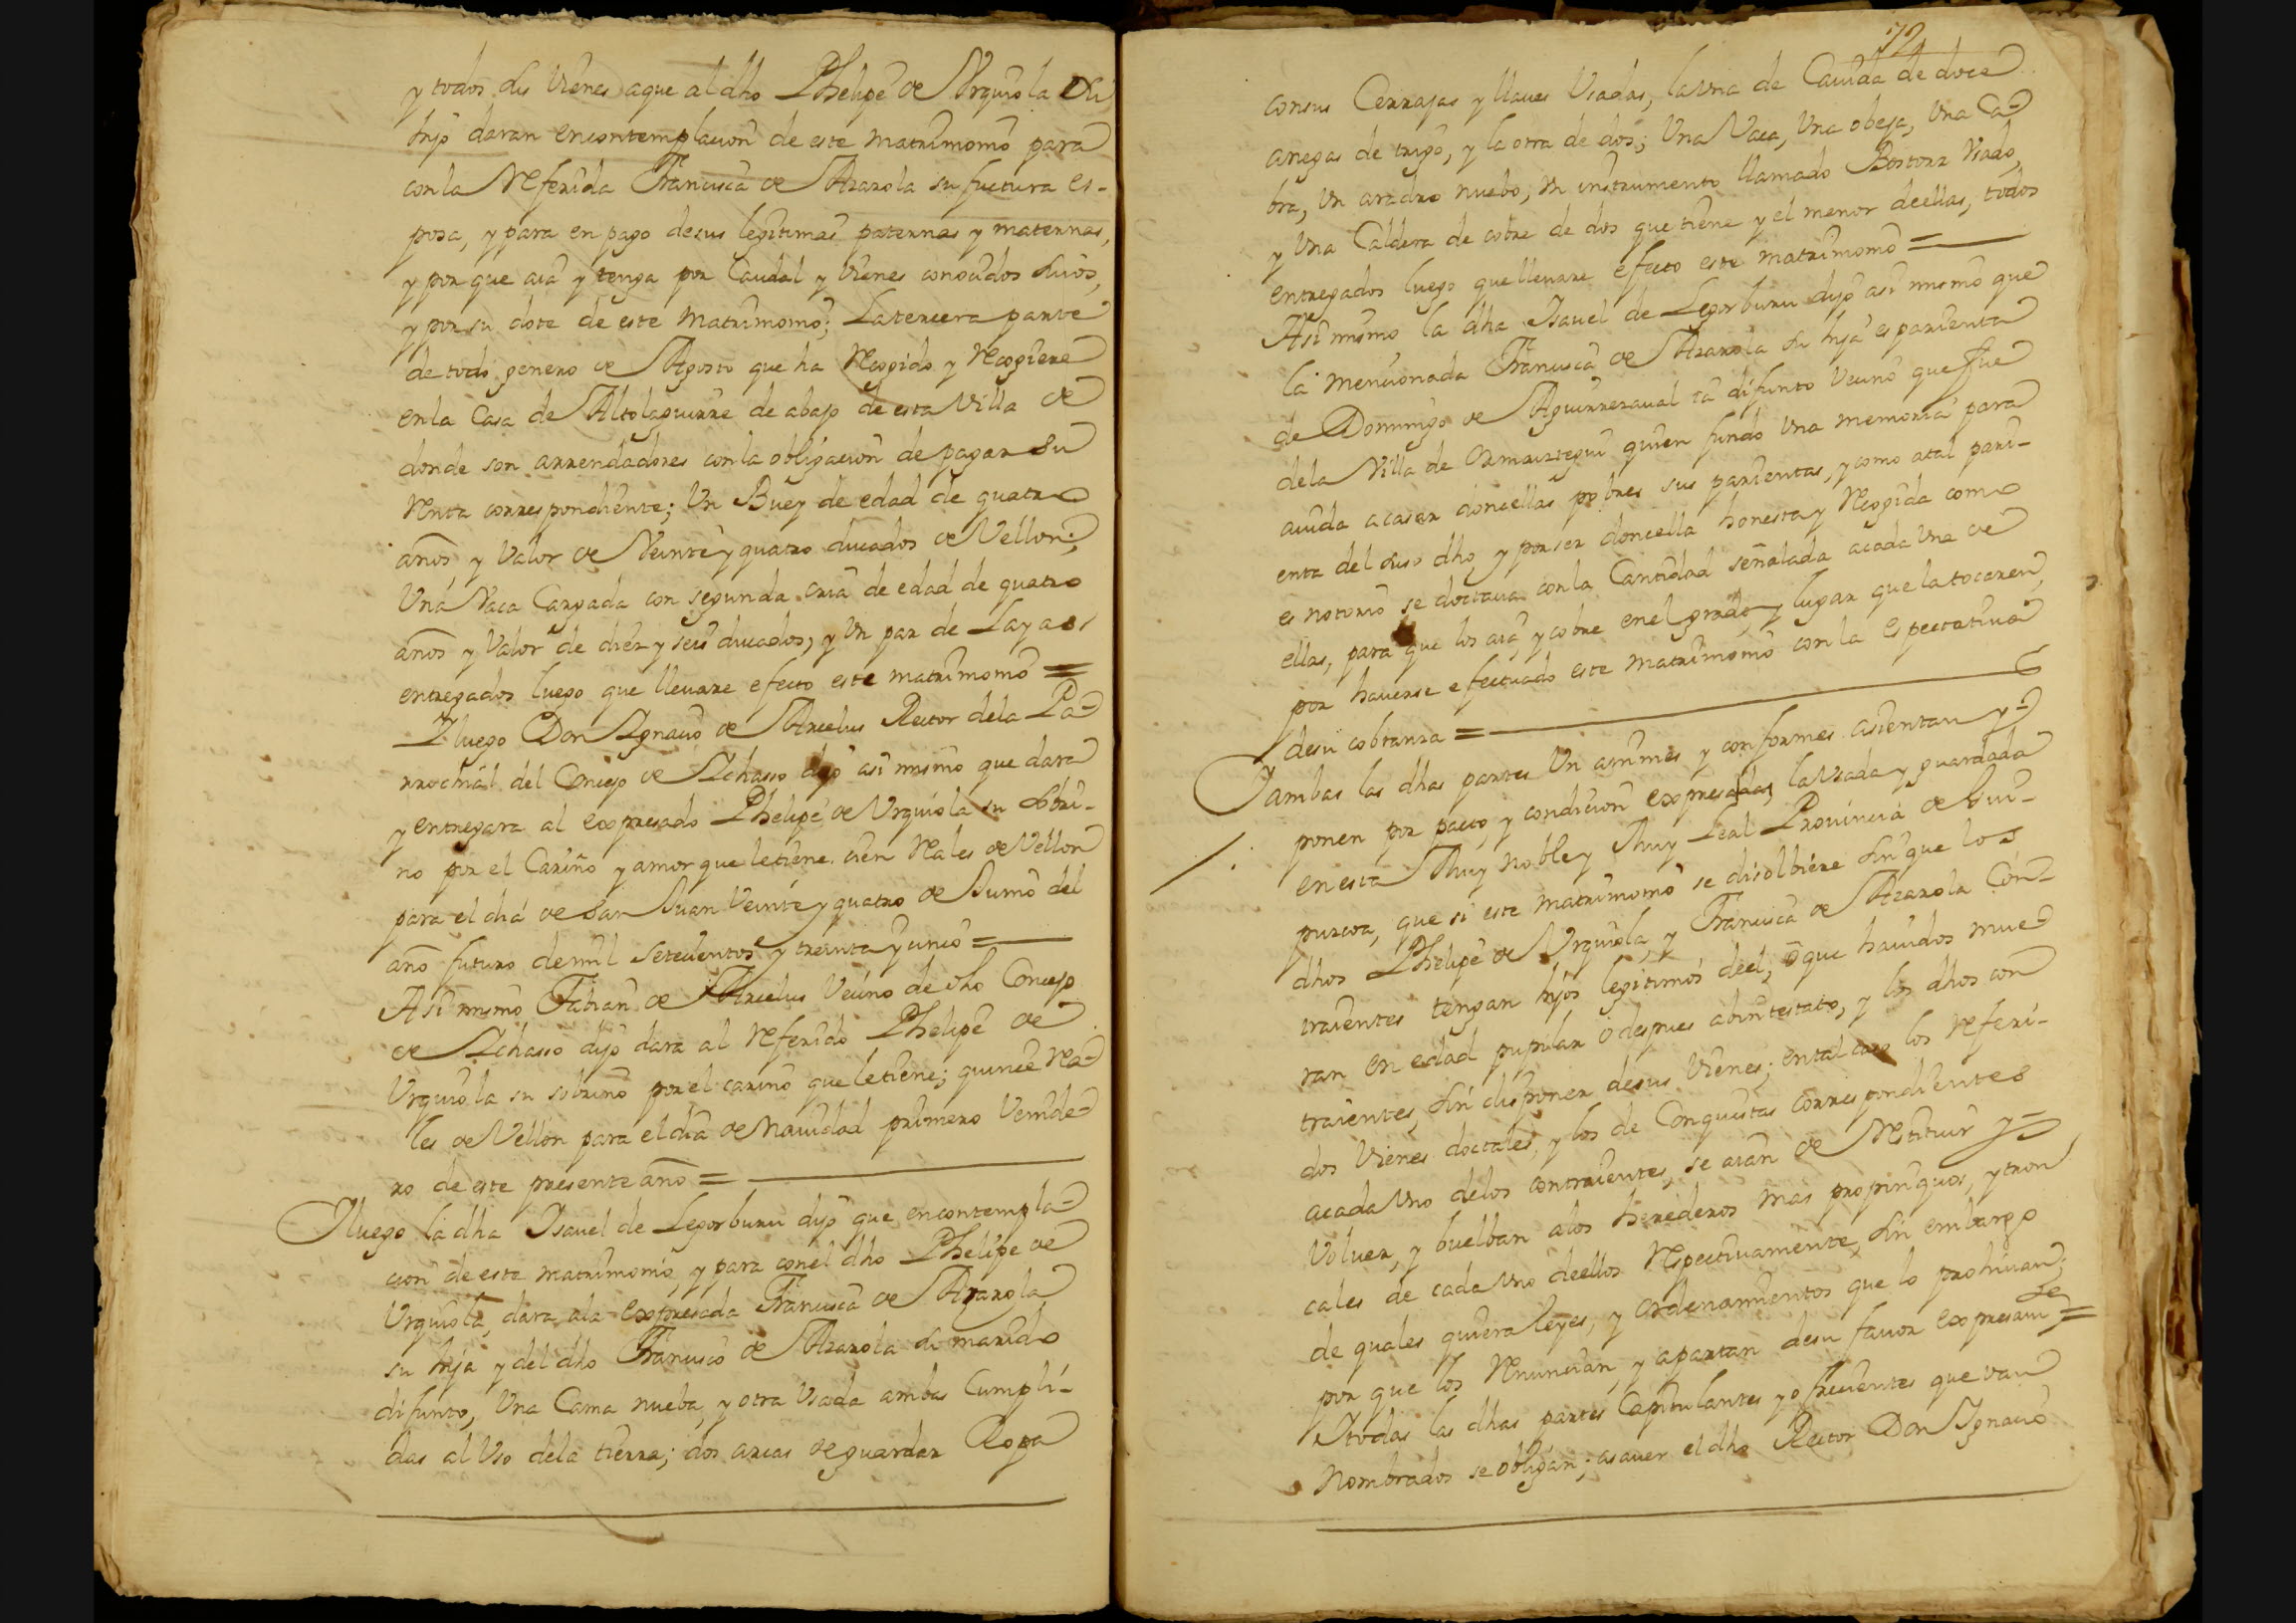 y todos sus vienes a que al dho Phelipe de Urquiola su
hijo daran en contemplacion de este matrimonio para
con la referida Francisca de Arazola su fuctura es-
posa, y para en pago de sus legitimas paternas y maternas,
y por que aia y tenga por Caudal y vienes conocidos suios,
y por su dote de este Matrimonio; La tercera parte
de todo genero de Agosto que ha recogido y recogiere
en la Casa de Altolaguirre de abajo de esta Villa de
donde son arrendadores con la obligacion de pagar su
renta correspondiente; Un Buey de edad de quatro
años, y valor de Veinte y quatro ducados de Vellon;
Una Vaca Cargada con segunda cria de edad de quatro
años y Valor de diez y seis ducados, y Un par de Layas
entregados luego que lleuare efecto este matrimonio =
Y luego Don Ygnacio de Arcelus Rector de la Pa-
rrochial del Concejo de Ychasso dijo asi mismo que dara
y entregara al expresado Phelipe de Urquiola su sobri-
no por el Cariño y amor que le tiene cien reales de Vellon
para el dia de San Juan Veinte y quatro de Junio del
año futuro de mil setecientos y treinta y cinco =
Asi mismo Fabian de Arcelus Vecino de dho Concejo
de Ychasso dijo dara al referido Phelipe de
Urquiola su sobrino por el cariño que le tiene; quince rea-
les de Vellon para el dia de Nauidad primero Venide-
ro de este presente año =
Y luego la dha Isauel de Legorburu dijo que en contempla-
cion de este matrimonio, y para con el dho Phelipe de
Urquiola, dara a la expresada Francisca de Arazola
su hija y del dho Francisco de Arazola su marido
difunto, Una Cama nueba, y otra Vsada ambas Cumpli-
das al Vso de la tierra; dos arcas de guardar Ropa
72
con sus Cerrajas y llaues Vsadas, la Una de Cauida de doce
anegas de trigo, y la otra de dos; Una Vaca, Una obeja, Una Ca-
bra, Un aradro nuebo, un instrumento llamado Bostorz Vsado,
y Una Caldera de cobre de dos que tiene y el menor de ellas, todos
entregados luego que lleuare efecto este matrimonio =
Asi mismo la dha Isauel de Legorburu dijo asi mismo que
la mencionada Francisca de Arazola su hija es parienta
de Domingo de Aguirrezaual ia difunto Vecino que fue
de la Villa de Ormaiztegui quien fundo Una memoria para
aiuda a casar doncellas pobres sus parientas, y como a tal pari-
enta del suso dho, y por ser doncella honesta y recogida como
es notorio se doctaua con la Cantidad señalada a cada Una de
ellas, para que los aia, y cobre en el grado, y lugar que la tocaren,
por hauerse efectuado este matrimonio con la espectatiua
de su cobranza =
Y ambas las dhas partes Unanimes y conformes asientan y
ponen por pacto, y condicion expresadas, la Vsada y guardada
en esta Muy noble y Muy Leal Prouincia de Gui-
puzcoa, que si este matrimonio se disolbiere sin que los
dhos Phelipe de Urquiola, y Francisca de Arazola Con-
traientes tengan hijos legitimos de el, o que hauidos mue-
ran en edad pupilar o despues abintestato, y los dhos con
traientes, sin disponer de sus Vienes; en tal caso los referi-
dos Vienes doctales, y los de Conquistas correspondientes
a cada Uno de los contraientes, se aian de restituir y
Voluer, y buelban a los herederos mas propinquos, y tron
cales de cada Uno de ellos respectiuamente, sin embargo
de quales quiera leyes, y ordenamientos que lo prohiuan;
por que los renuncian, y apartan de su fauor expresam.te =
Y todas las dhas partes Capitulantes y ofrecientes que van
nombrados se obligan; a sauer el dho Rector Don Ygnacio